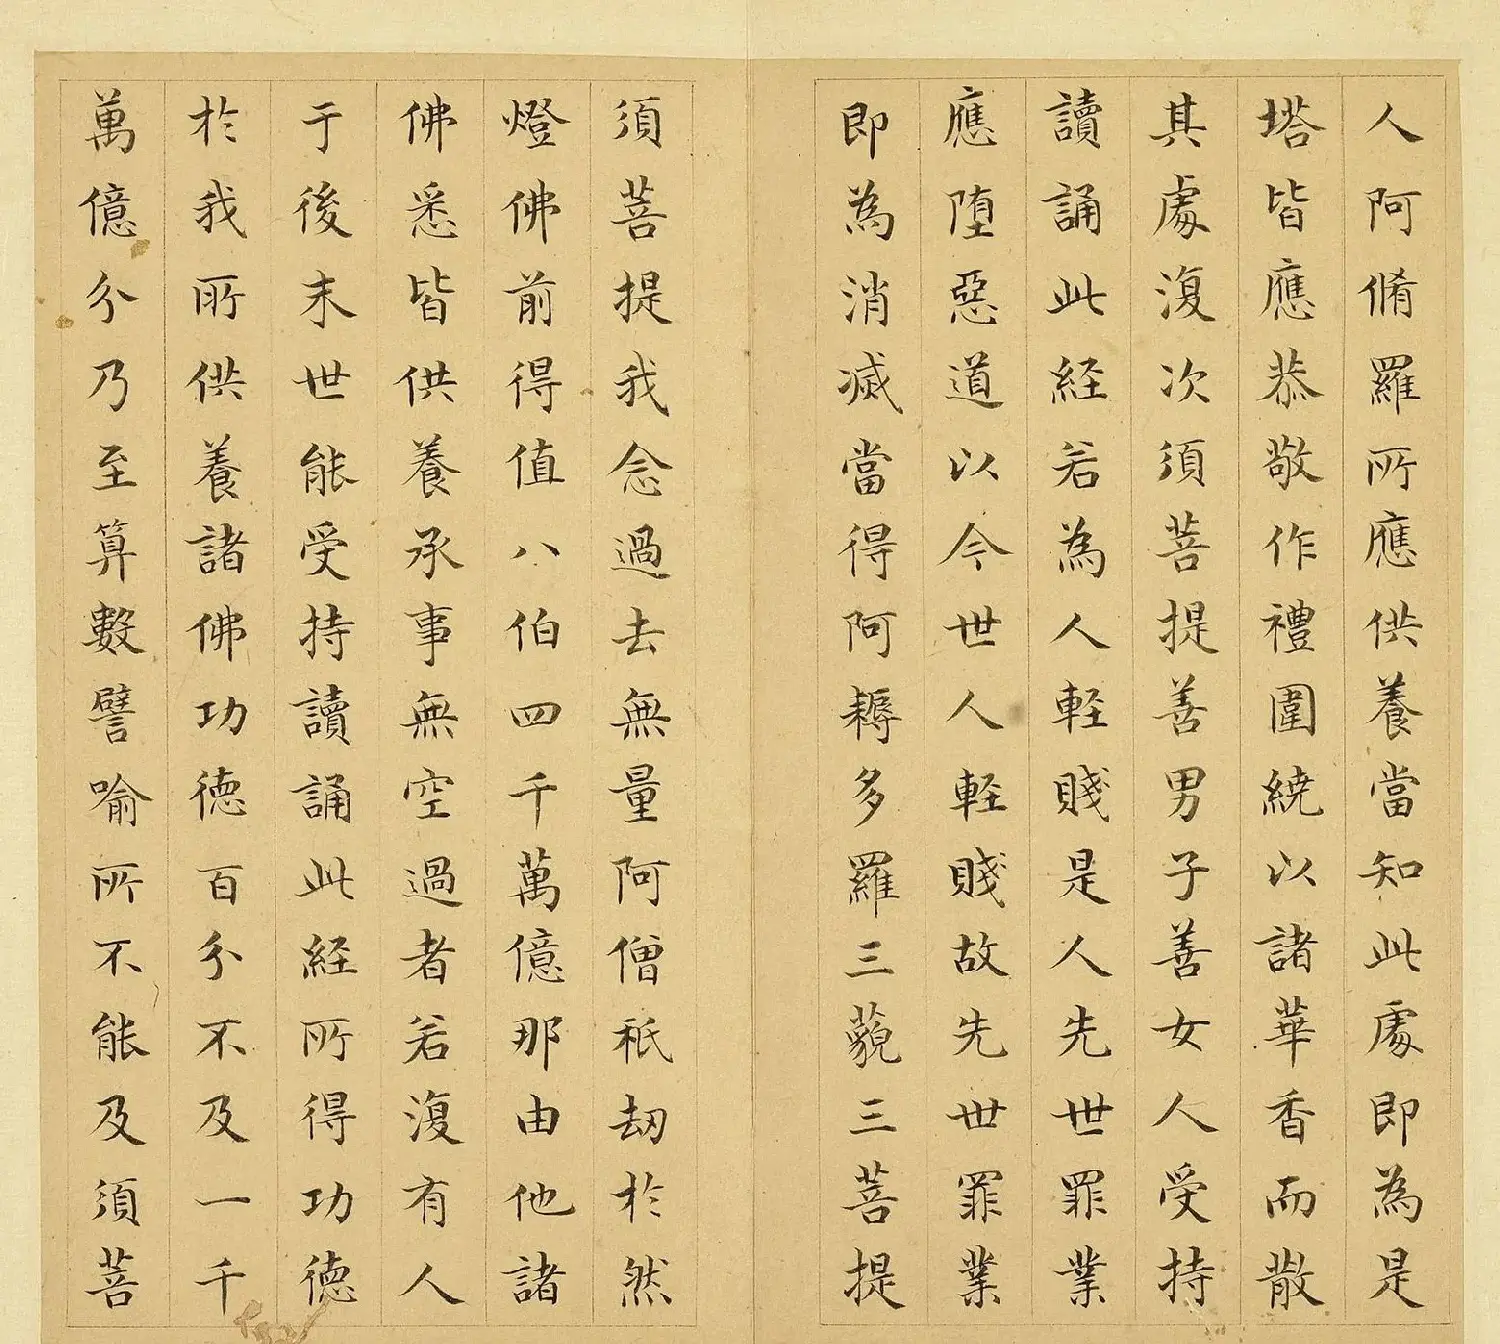 人阿脩羅所應供養當知此處即為是
塔皆應恭敬作禮圍繞以諸華香而散
其處復次須菩提善男子善女人受持
讀誦此経若為人輕賤是人先世罪業
應堕惡道以今世人輕賤故先世罪業
即為消滅當得阿耨多羅三藐三菩提
須菩提我念過去無量阿僧祇劫於然
燈佛前得值八伯四千萬億那由他諸
佛悉皆供養承事無空過者若復有人
于後末世能受持讀誦此経所得功德
於我所供養諸佛功德百分不及一千
萬億分乃至算數譬喻所不能及須菩